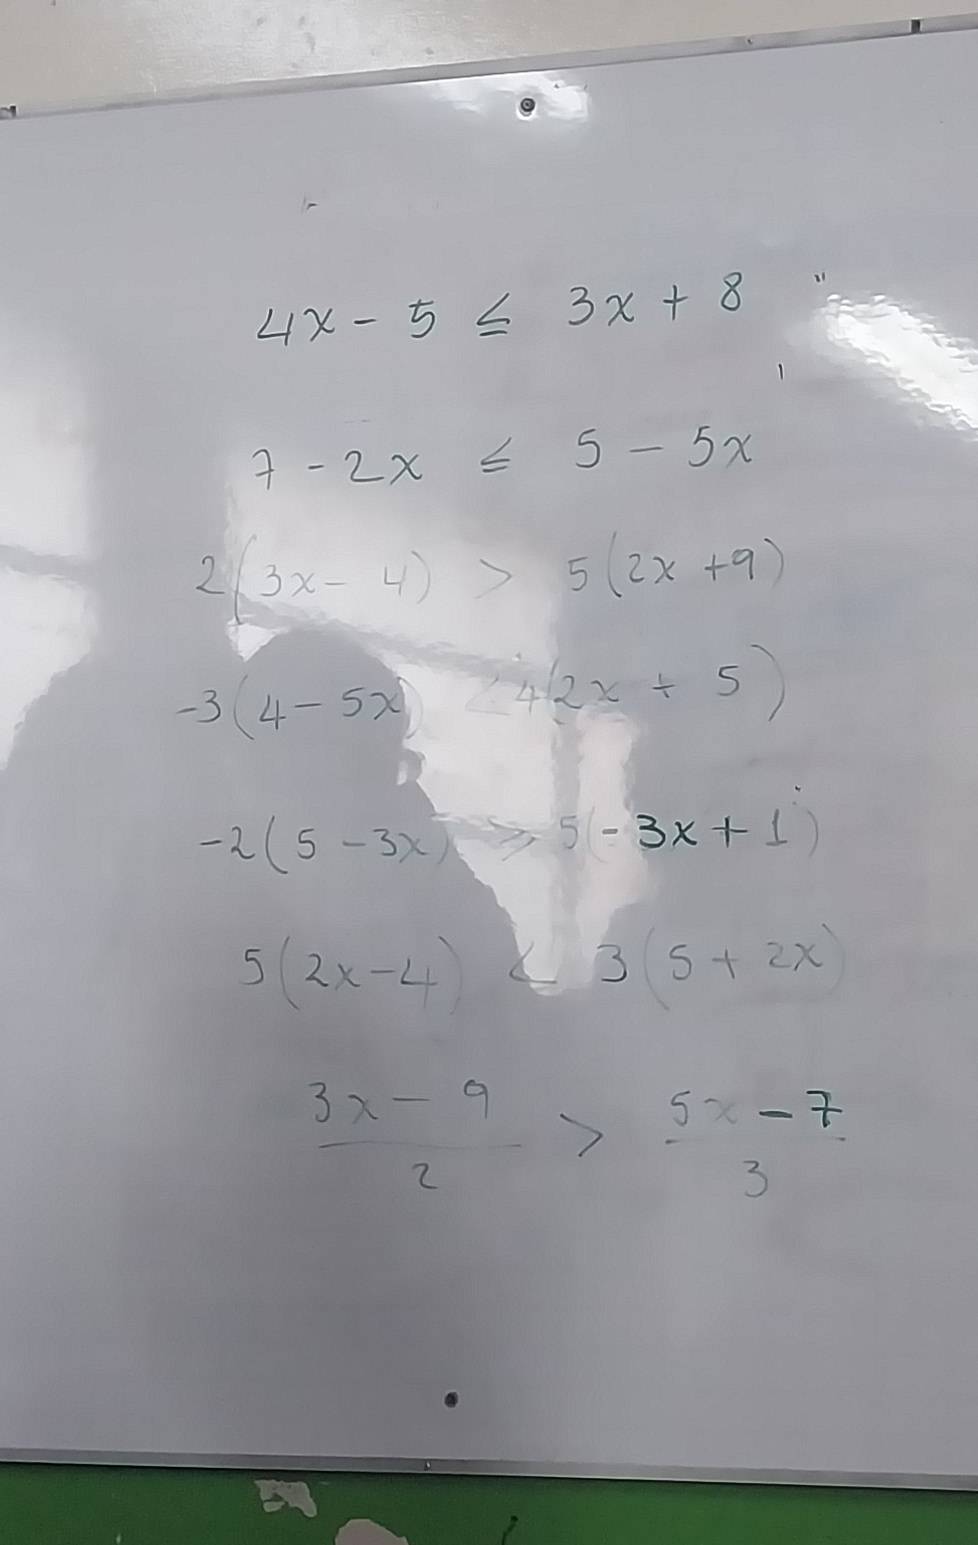 4x - 5 ≤ 3x + 8
7 - 2x ≤ 5 - 5x
2(3x - 4) > 5(2x + 9)
-3(4 - 5x) < 4(2x + 5)
-2(5 - 3x) > 5(-3x + 1)
5(2x - 4) < 3(5 + 2x)
(3x - 9)/2 > (5x - 7)/3